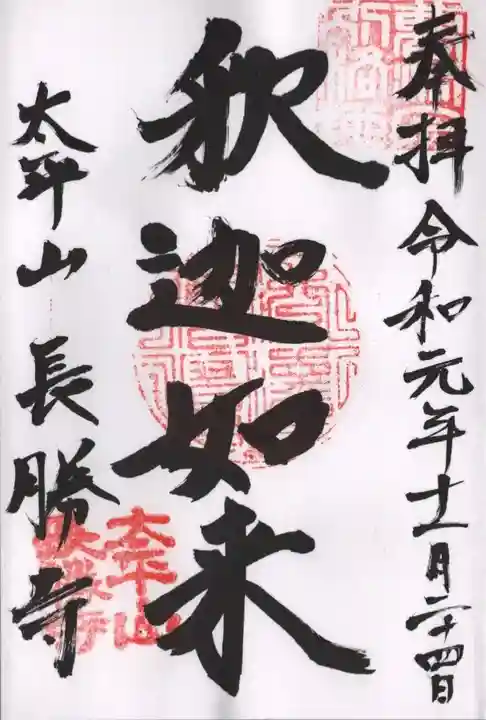 奉拝 令和元年十一月二十四日
釈迦如来
太平山 長勝寺
太平山
長勝寺